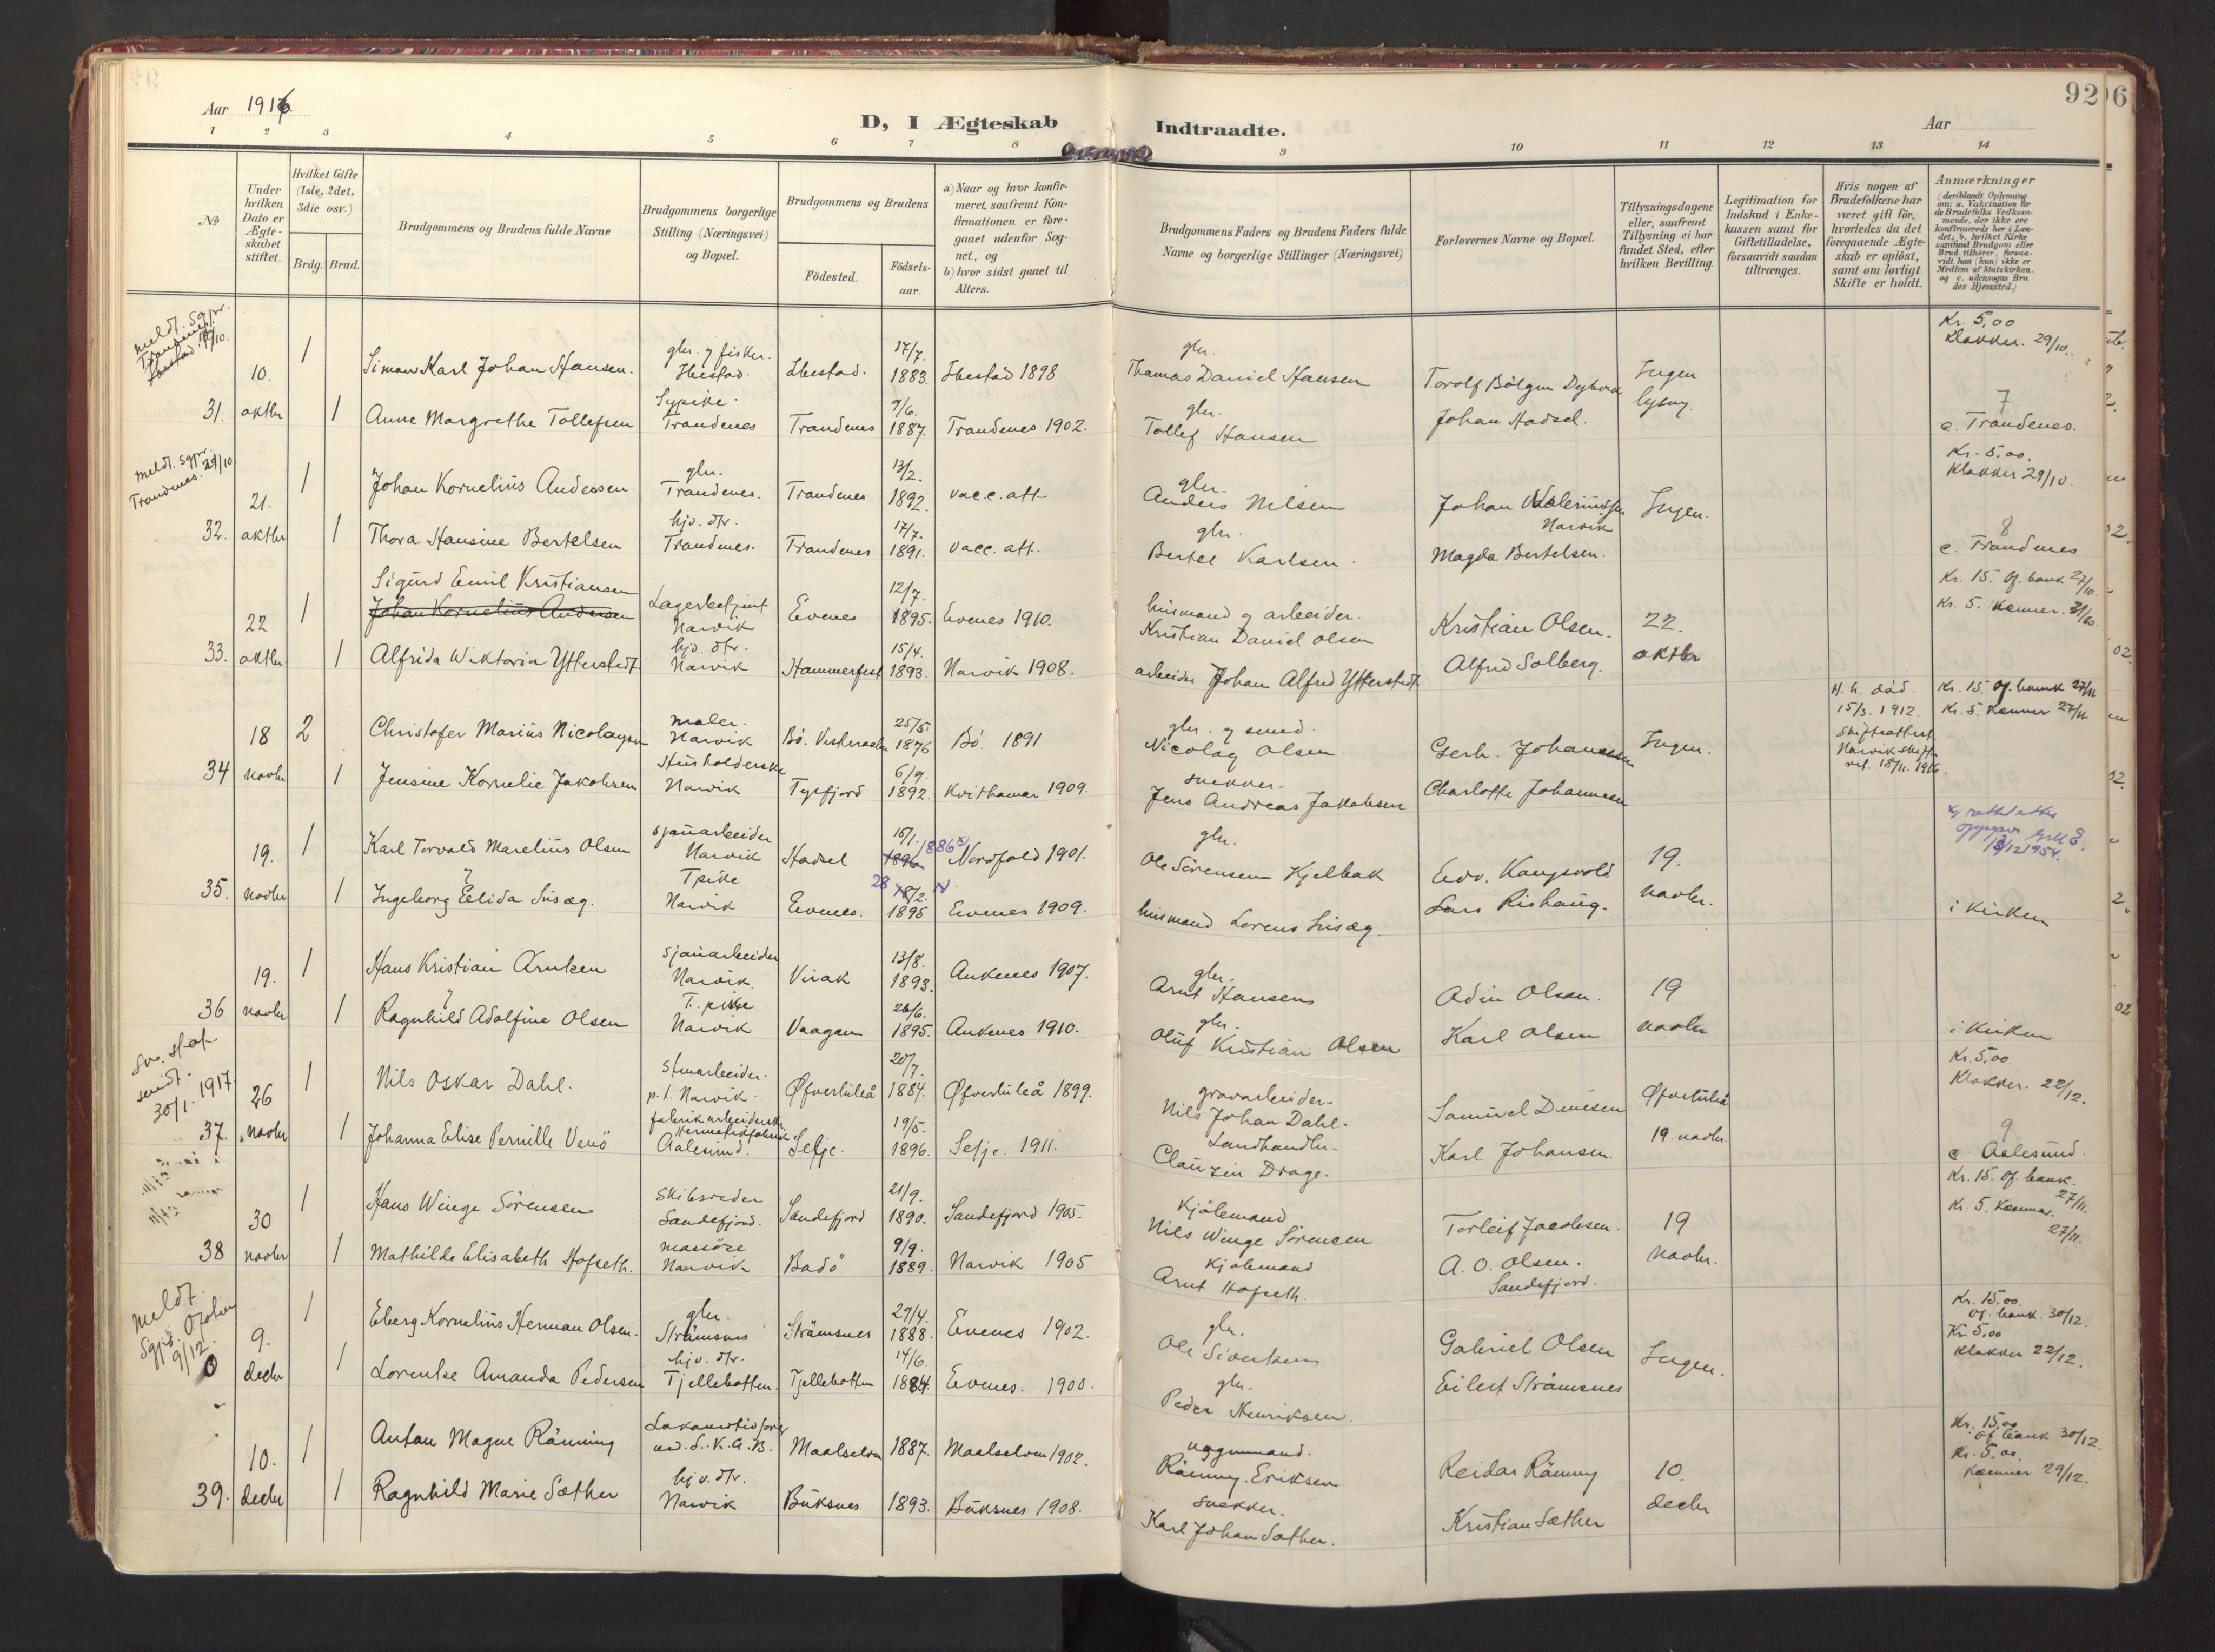 Aar 1916
D, I Ægteskab Indtraadte.
Aar
92
1 2 3 4 5 6 7 8 9 10 11 12 13 14
No
Under hvilken Dato er Ægteskabet stiftet.
Hvilket Gifte (1ste, 2det, 3die osv.)
Brdg. Brud.
Brudgommens og Brudens fulde Navne
Brudgommens borgerlige Stilling (Næringsvei) og Bopæl.
Brudgommens og Brudens
Fødested.
Fødselsaar.
a) Naar og hvor konfirmeret, saafremt Konfirmationen er foregaaet udenfor Sognet, og
b) hvor sidst gaaet til Alters.
Brudgommens Faders og Brudens Faders fulde Navne og borgerlige Stillinger (Næringsvei)
Forlovernes Navne og Bopæl.
Tillysningsdagene eller, saafremt Tillysning ei har fundet Sted, efter hvilken Bevilling.
Legitimation for Indskud i Enkekassen samt for Giftetilladelse, forsaavidt saadan tiltrænges.
Hvis nogen af Brudefolkene har været gift før, hvorledes da det foregaaende Ægteskab er opløst, samt om lovligt Skifte er holdt.
Anmærkninger
(deriblandt Oplysning om: a. Vakcination for de Brudefolks Vedkommende, der ikke ere konfirmerede her i Landet; b. hvilket Kirkesamfund Brudgom eller Brud tilhører, forsaavidt han (hun) ikke er Medlem af Statskirken, og c. udensogns Brudes Hjemsted.)
meldt. Sgpr.
Kr. 5,00
Klokker. 29/10.
10. 1 Simon Karl Johan Hansen. glr. og fisker. Ibestad. Ibestad. 17/7. 1883. Ibestad 1898 glr. Thomas Daniel Hansen Ingen
31. oktbr 1 Anne Margrethe Tollefsen Sypike. Trondenes Trondenes 9/6. 1887. Trondenes 1902. glr. Tollef Hansen Johan Hadsel. lysng. 7 c. Trondenes.
meldt. Sgpr. Trondenes. 29/10
Kr. 5,00.
Klokker 29/10.
21. 1 Johan Kornelius Andersen glr. Trondenes. Trondenes 13/2. 1892. vacc. att glr. Anders Nilsen Johan Narvik Ingen.
32. oktbr 1 Thora Hansine Bertelsen hjv. dtr. Trondenes. Trondenes 17/7. 1891. vacc. att. glr. Bertel Karlsen. Magda Bertelsen. 8 c. Trondenes
Sigurd Emil Kristiansen
22 1 Johan Kornelius Andersen Lagerbetjent Narvik Evenes 12/7. 1895. Evenes 1910. husmand og arbeider. Kristian Daniel Olsen Kristian Olsen. 22. Kr. 15. Of. bank 27/10. Kr. 5. Kæmner.
33. oktbr 1 Alfrida Wiktoria Ytterstedt hjv. dtr. Narvik Hammerfest 15/4. 1893. Narvik 1908. arbeider Johan Alfred Ytterstedt Alfred Solberg. oktbr
18 2 Christofer Marius Nicolaysen maler. Narvik Bø. Vesteraalen 25/5. 1876 Bø. 1891 glr. og smed. Nicolay Olsen. Gerh. Johannesen Ingen. H. h. død. 15/3. 1912. Skifteattest Narvik skifteret. 18/11. 1916. Kr. 15 Of. bank 27/11 Kr. 5. Kæmner 27/11.
34 novbr 1 Jensine Kornelie Jakobsen Husholderske Narvik Tysfjord 6/9. 1892. Kvithamar 1909. snekker. Jens Andreas Jakobsen Charlotte Johannesen
19. 1 Karl Torvald Marelius Olsen sjauarbeider Narvik Hadsel 1896 1886 Nordfold 1901. glr. Ole Sørensen Kjelbak Edv. Kangsvold 19. 13/12 1954.
35. novbr 1 Ingeborg Elida Susæg. Tpike Narvik Evenes. 28 18/2. 1895 Evenes 1909. husmand Lorens Susæg. Lars Rishaug. novbr. i Kirken
19. 1 Hans Kristian Arntsen sjauarbeider Narvik. Virak 13/8. 1893. Ankenes 1907. glr. Arnt Hansen Adin Olsen. 19
36 novbr 1 Ragnhild Adolfine Olsen T. pike Narvik Vaagan 26/6. 1895. Ankenes 1910. glr. Oluf Kristian Olsen Karl Olsen novbr i Kirken
sendt. 30/1. 1917
Kr. 5,00.
Klokker. 22/12.
26 1 Nils Oskar Dahl. stenarbeider. p.t. Narvik. Øfverluleå 20/7. 1884. Øfverluleå 1899. grovarbeider. Nils Johan Dahl. Samuel Denesen Øfverluleå
37. novbr 1 Johanna Elise Pernille Venö fabrikarbeiderske Hermetikfabrik Aalesund. Selje. 19/5. 1896. Selje. 1911. Landhandler. Drage. Karl Johansen. 19 novbr. 9 c Aalesund.
Kr. 15. Of. bank. 27/11.
Kr. 5. Kæmner. 27/11.
30 1 Hans Winge Sörensen Skibsreder Sandefjord. Sandefjord 21/9. 1890. Sandefjord 1905. Kjøbmand Nils Winge Sörensen Torleif Jacobsen. 19
38 novbr 1 Mathilde Elisabeth Hofseth. massöse Narvik Bodö 9/9. 1889. Narvik 1905 Kjøbmand Arnt Hofseth. A. O. Olsen. Sandefjord. novbr.
Meldt. Sgpr. 9/12.
Kr. 15,00. Of. bank. 30/12.
Kr 5,00 Klokker 22/12.
9. 1 Eberg Kornelius Herman Olsen. glr. Strömsnes Strömsnes 29/4. 1888. Evenes 1902. glr. Ole Sivertsen Gabriel Olsen Ingen.
0 decbr 1 Lorentse Amanda Pedersen hjv. dtr. Tjellebotten. Tjellebotten 14/6. 1884. Evenes. 1900. glr. Peder Henriksen. Eilert Strömsnes
Kr. 15,00 Of bank 30/12.
Kr. 5.00. Kæmner 29/12.
10. 1 Anton Magne Rönning Lokomotivfører Maalselven 1887. Maalselven 1902. Rönning Eriksen Reidar Rönning 10.
39. decbr 1 Ragnhild Marie Sæther hjv. dtr. Narvik Buksnes 1893. Buksnes 1908. snekker. Karl Johan Sæther. Kristian Sæther decbr